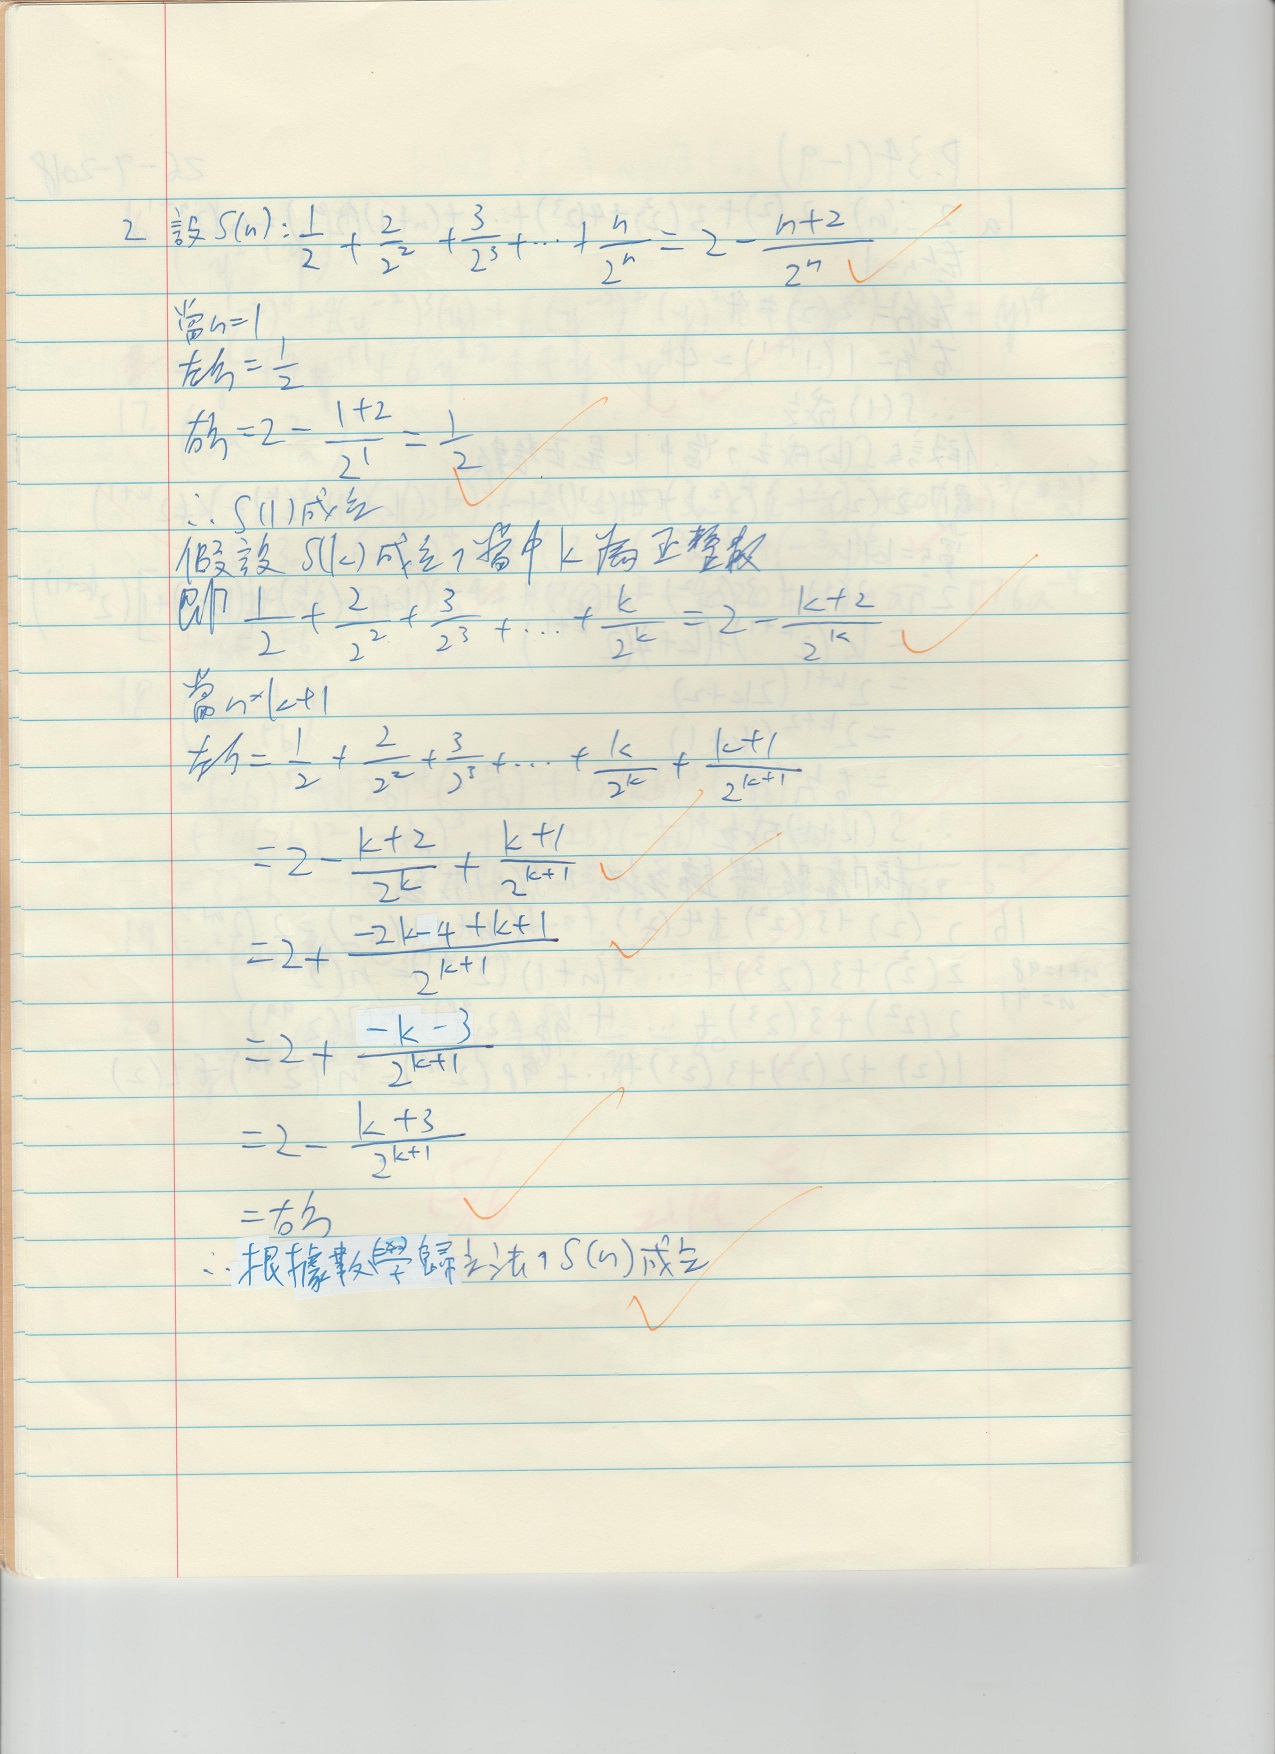 2 設S(n): 1/2 + 2/2² + 3/2³ + ... + n/2ⁿ = 2 - (n+2)/2ⁿ
當n=1
左方 = 1/2
右方 = 2 - (1+2)/2¹ = 1/2
∴ S(1)成立
假設 S(k)成立,當中 k 為正整數
即 1/2 + 2/2² + 3/2³ + ... + k/2ᵏ = 2 - (k+2)/2ᵏ
當n=k+1
左方 = 1/2 + 2/2² + 3/2³ + ... + k/2ᵏ + (k+1)/2ᵏ⁺¹
= 2 - (k+2)/2ᵏ + (k+1)/2ᵏ⁺¹
= 2 + (-2k-4+k+1)/2ᵏ⁺¹
= 2 + (-k-3)/2ᵏ⁺¹
= 2 - (k+3)/2ᵏ⁺¹
= 右方
∴ 根據數學歸立法,S(n)成立